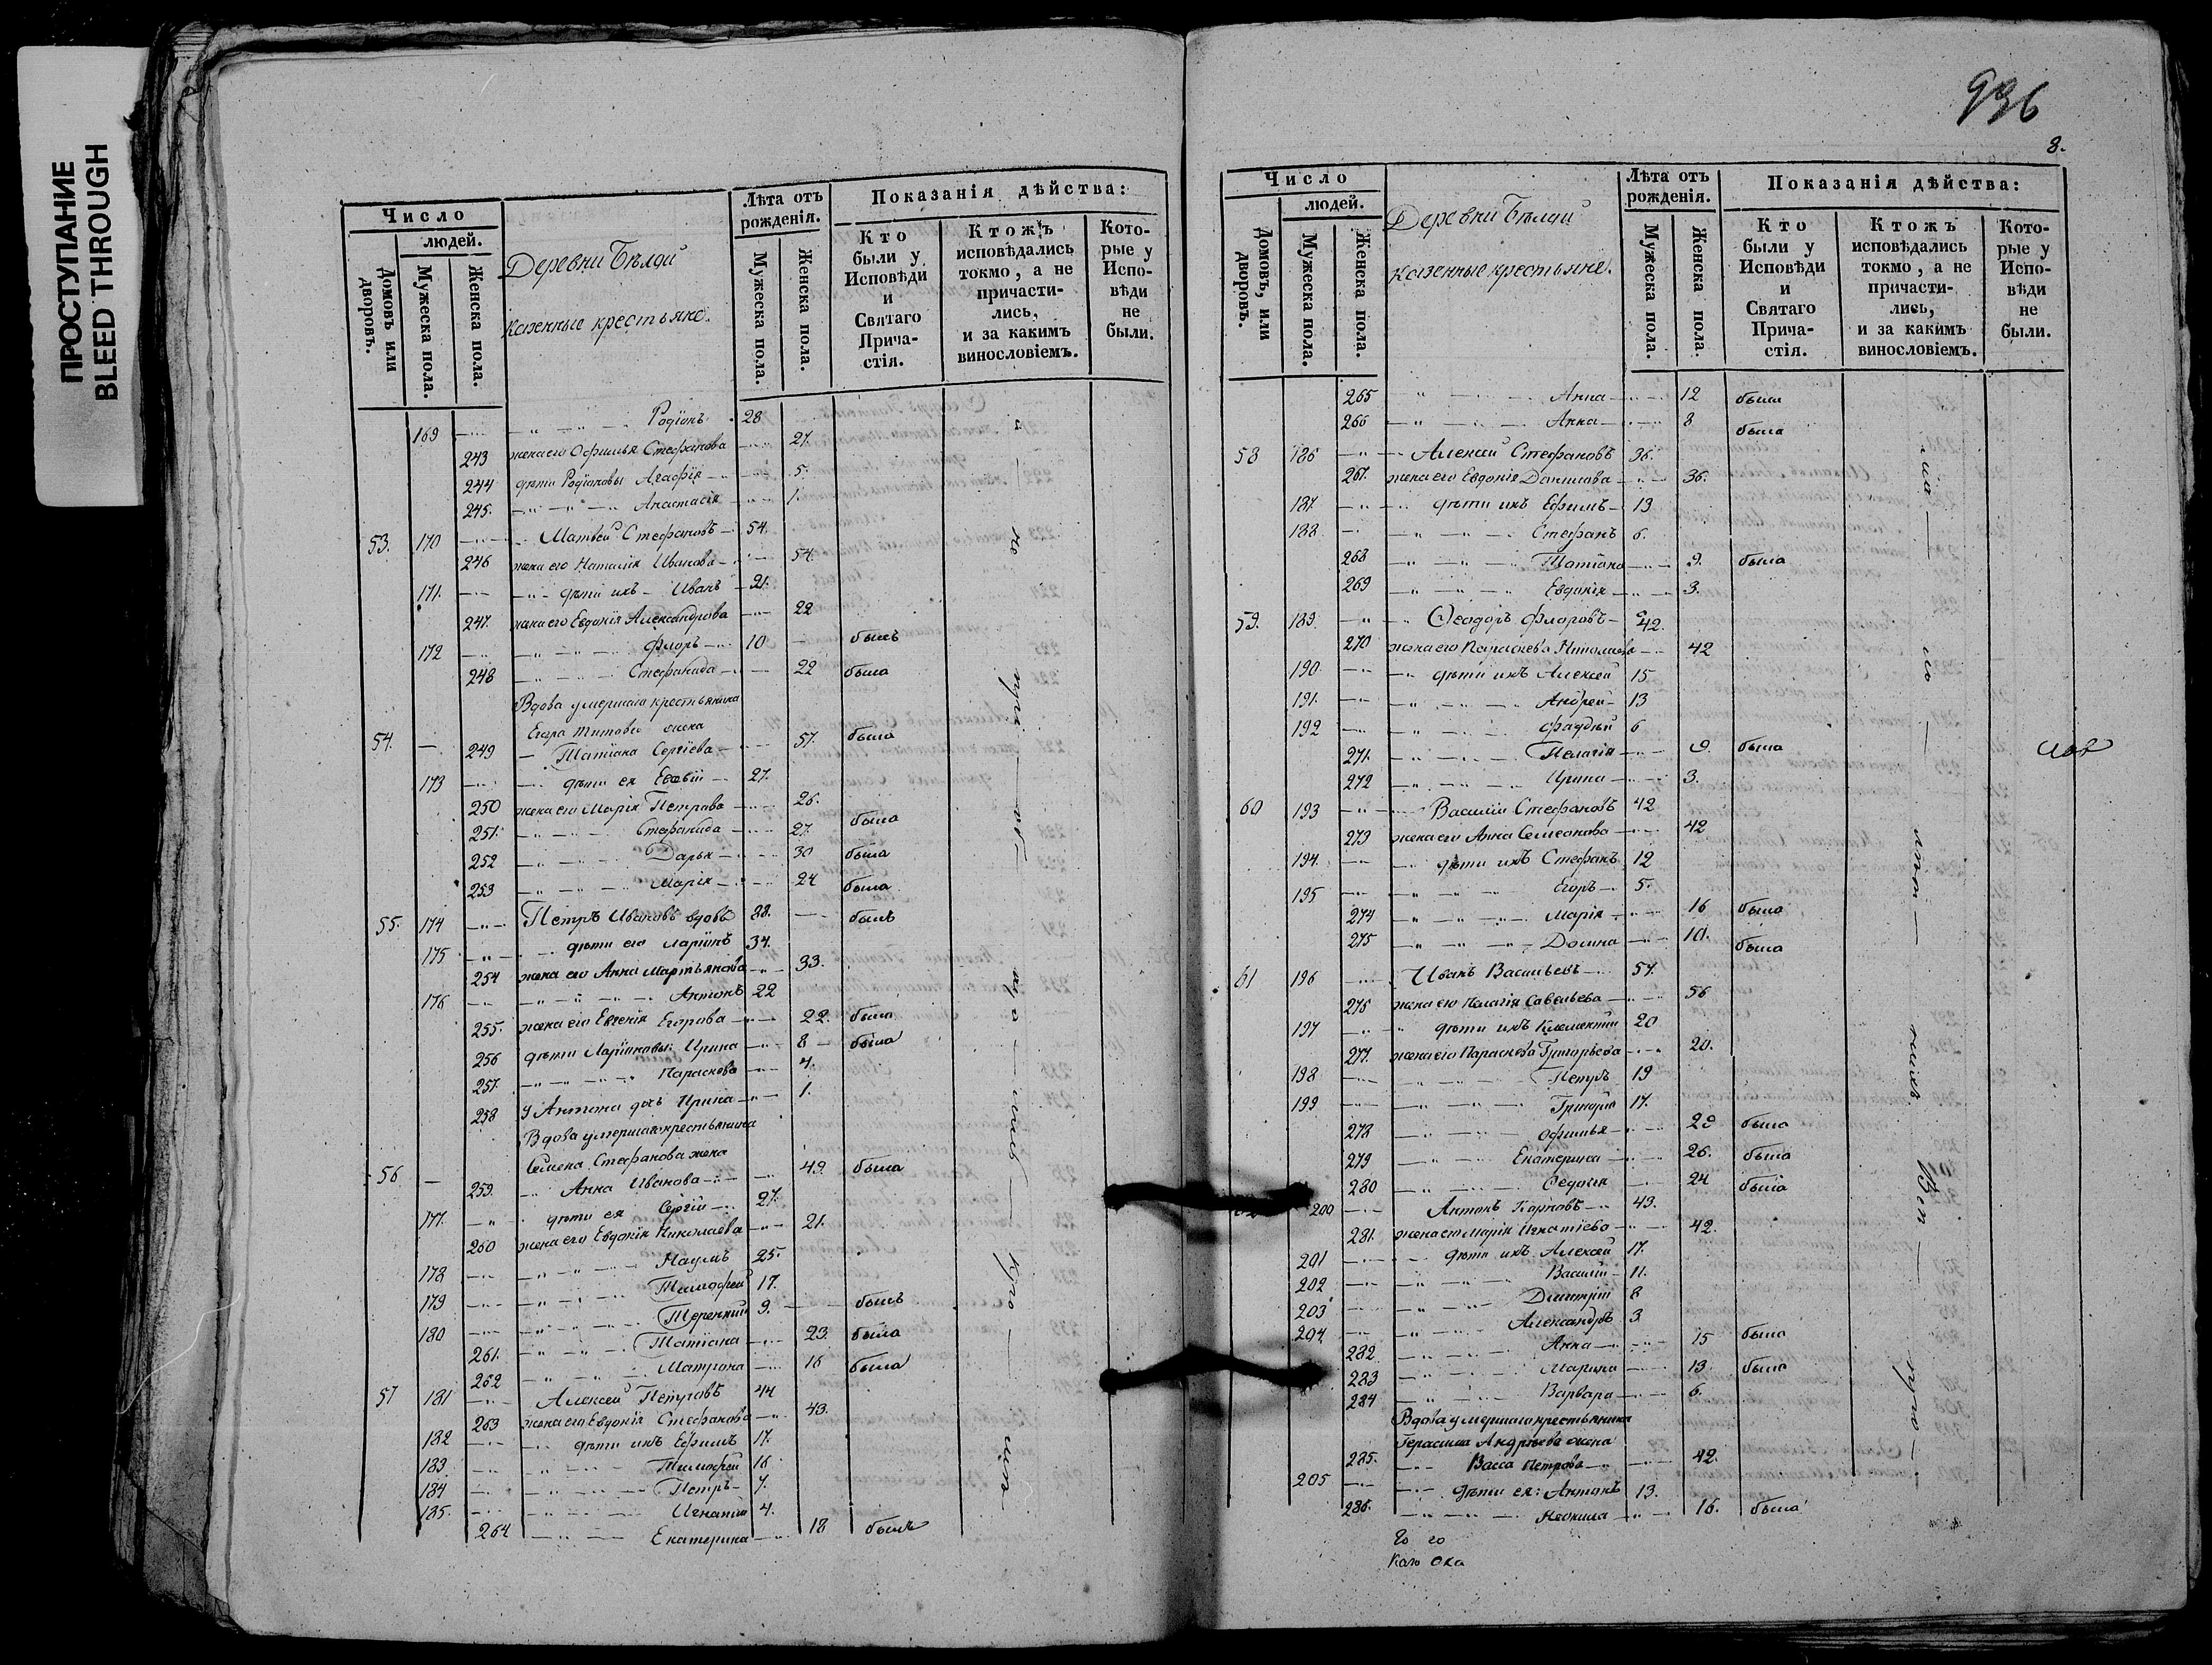 ПРОСТУПАНИЕ
BLEED THROUGH
Число
людей.
Домовъ или дворовъ.
Мужеска пола.
Женска пола.
Деревни Бѣлой
казенные крестьяне.
Лѣта отъ рожденія.
Мужеска пола.
Женска пола.
Показанія дѣйства:
Кто были у Исповѣди и Святаго Прича-стія.
Ктожъ исповѣдались токмо, а не причасти-лись, и за какимъ винословіемъ.
Кото-рые у Испо-вѣди не были.
169 Родіонъ 28
243 жена его Офимья Стефанова 27.
244 дѣти Родіоновы Агафія 5.
245. Анастасія 1.
53. 170 Матвей Стефановъ 54.
246 жена его Наталія Иванова 54.
171. дѣти ихъ Иванъ 21.
247. жена его Евдокія Александрова 22
172 Флоръ 10 былъ
248 Стефанида 22 была
Вдова умершаго крестьянина
Егора Титова жена
54. 249 Татіана Сергіева 57. была
173 дѣти ея Евсѣй 27.
250 жена его Марія Петрова 26.
251. Стефанида 27. была
252 Дарья 30 была
253 Марія 24 была
55. 174 Петръ Ивановъ вдовъ 88. былъ
175 дѣти его Ларіонъ 34.
254 жена его Анна Мартьянова 33.
176 Антонъ 22
255. жена его Евгенія Егорова 22. была
256 дѣти Ларіоновы: Ирина 8 была
257. Параскева 4.
258 У Антона дочь Ирина 1.
Вдова умершаго крестьянина
Семена Стефанова жена
56 259. Анна Иванова 49. была
177. дѣти ея Сергій 27.
260 жена его Евдокія Николаева 21.
178 Наумъ 25.
179 Тимофей 17.
180 Терентій 9. былъ
261. Татіана 23. была
262 Матрона 16 была
57 181 Алексей Петровъ 44
263 жена его Евдокія Стефанова 43.
182 дѣти ихъ Ефимъ 17.
183 Тимофей 16
184 Петръ 7.
185. Игнатій 4.
264 Екатерина 18 была
936
8.
Число
людей.
Домовъ, или дворовъ.
Мужеска пола.
Женска пола.
Деревни Бѣлой
казенные крестьяне.
Лѣта отъ рожденія.
Мужеска пола.
Женска пола.
Показанія дѣйства:
Кто были у Исповѣди и Святаго Прича-стія.
Ктожъ исповѣдались токмо, а не причасти-лись, и за какимъ винословіемъ.
Кото-рые у Испо-вѣди не были.
265 Анна 12 была
266 Анна 8 была
58 186 Алексей Стефановъ 36.
267. жена его Евдокія Данилова 36.
187. дѣти ихъ Ефимъ 13
188 Стефанъ 6.
268 Татіана 9. была
269 Евдокія 3.
59. 189. Ѳеодоръ Флоровъ 42.
270 жена его Параскева Николаева 42
190 дѣти ихъ Алексей 15
191. Андрей 13
192 Фаддей 6
271. Пелагія 9. была
272 Ирина 3.
60 193 Василій Стефановъ 42
273 жена его Анна Симеонова 42
194. дѣти ихъ Стефанъ 12
195 Егоръ 5.
274 Марія 16 была
275 Домна 10. была
61 196 Иванъ Васильевъ 57.
276 жена его Пелагія Савельева 56
197 дѣти ихъ Климентій 20
277. жена его Параскева Григорьева 20.
198 Петръ 19
199 Григорій 17.
278 Офимья 29 была
279 Екатерина 26. была
280 Ѳедосья 24 была
200 Антонъ Карповъ 43.
281. жена его Марія Игнатіева 42.
201 дѣти ихъ Алексей 17.
202 Василій 11.
203 Дмитрій 8
204 Александръ 3.
282 Анна 15 была
283 Марина 13. была
284 Варвара 6.
Вдова умершаго крестьянина
Герасима Андреева жена
285. Васса Петрова 42.
205 дѣти ея: Антонъ 13.
286. Неонила 16. была